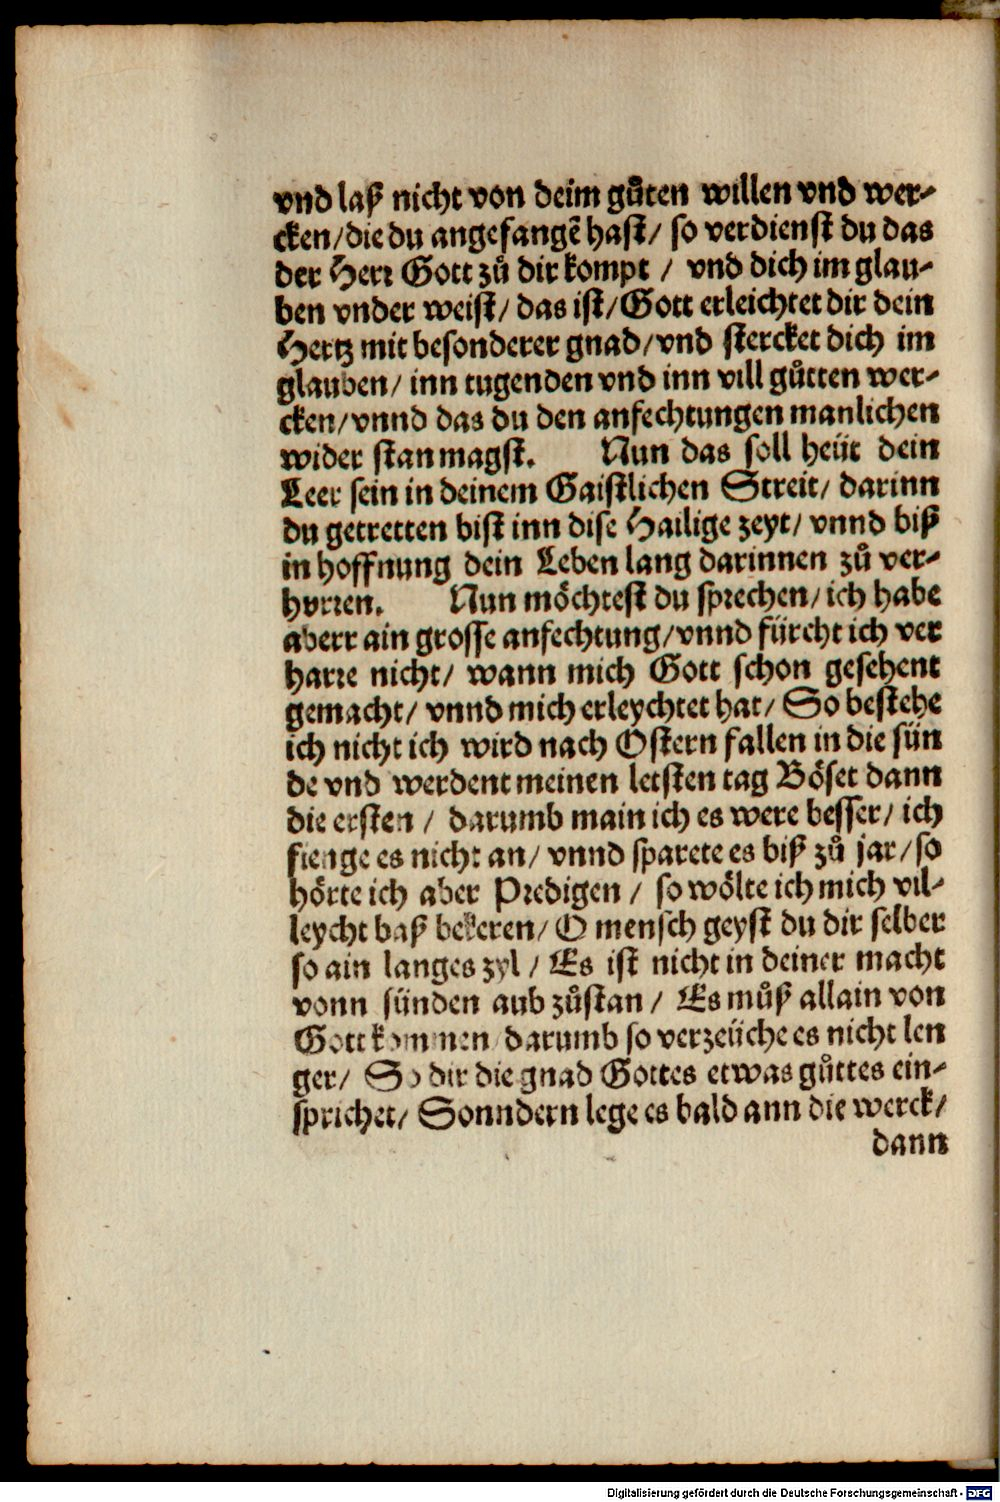 vnd laß nicht von deim gůten willen vnd wer-
cken/die du angefangẽ hast/ so verdienst du das
der Herr Gott zů dir kompt / vnd dich im glau-
ben vnder weist/ das ist/Gott erleichtet dir dein
Hertz mit besonderer gnad/vnd stercket dich im
glauben/ inn tugenden vnd inn vill gůtten wer-
cken/vnnd das du den anfechtungen manlichen
wider stan magst. Nun das soll heüt dein
Leer sein in deinem Gaistlichen Streit/ darinn
du getretten bist inn dise Hailige zeyt/ vnnd biß
in hoffnung dein Leben lang darinnen zů ver-
hvrren. Nun möchtest du sprechen/ ich habe
aberr ain grosse anfechtung/vnnd fürcht ich ver
harre nicht/ wann mich Gott schon gesehent
gemacht/ vnnd mich erleychtet hat/ So bestehe
ich nicht ich wird nach Ostern fallen in die sün
de vnd werdent meinen letsten tag Böset dann
die ersten / darumb main ich es were besser/ ich
fienge es nicht an/ vnnd sparete es biß zů jar/so
hörte ich aber Predigen / so wölte ich mich vil-
leycht baß bekeren/ O mensch geyst du dir selber
so ain langes zyl / Es ist nicht in deiner macht
vonn sünden aub zůstan / Es můß allain von
Gott kommen/darumb so verzeüche es nicht len
ger/ So dir die gnad Gottes etwas gůttes ein-
sprichet/ Sonndern lege es bald ann die werck/
dann
Digitalisierung gefördert durch die Deutsche Forschungsgemeinschaft - DFG